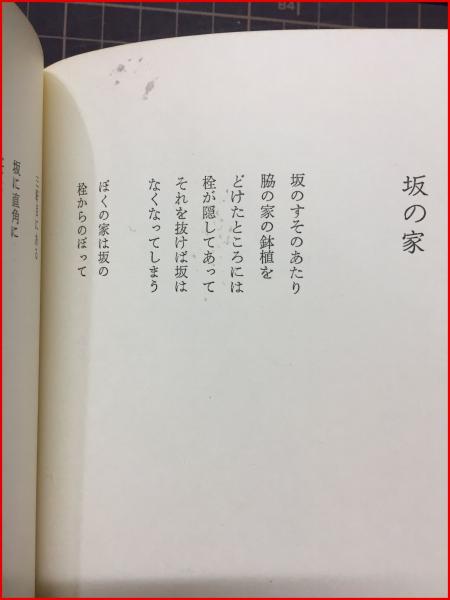 坂の家
坂のすそのあたり
脇の家の鉢植を
どけたところには
栓が隠してあって
それを抜けば坂は
なくなってしまう
ぼくの家は坂の
栓からのぼって
三軒目にある
坂に直角に